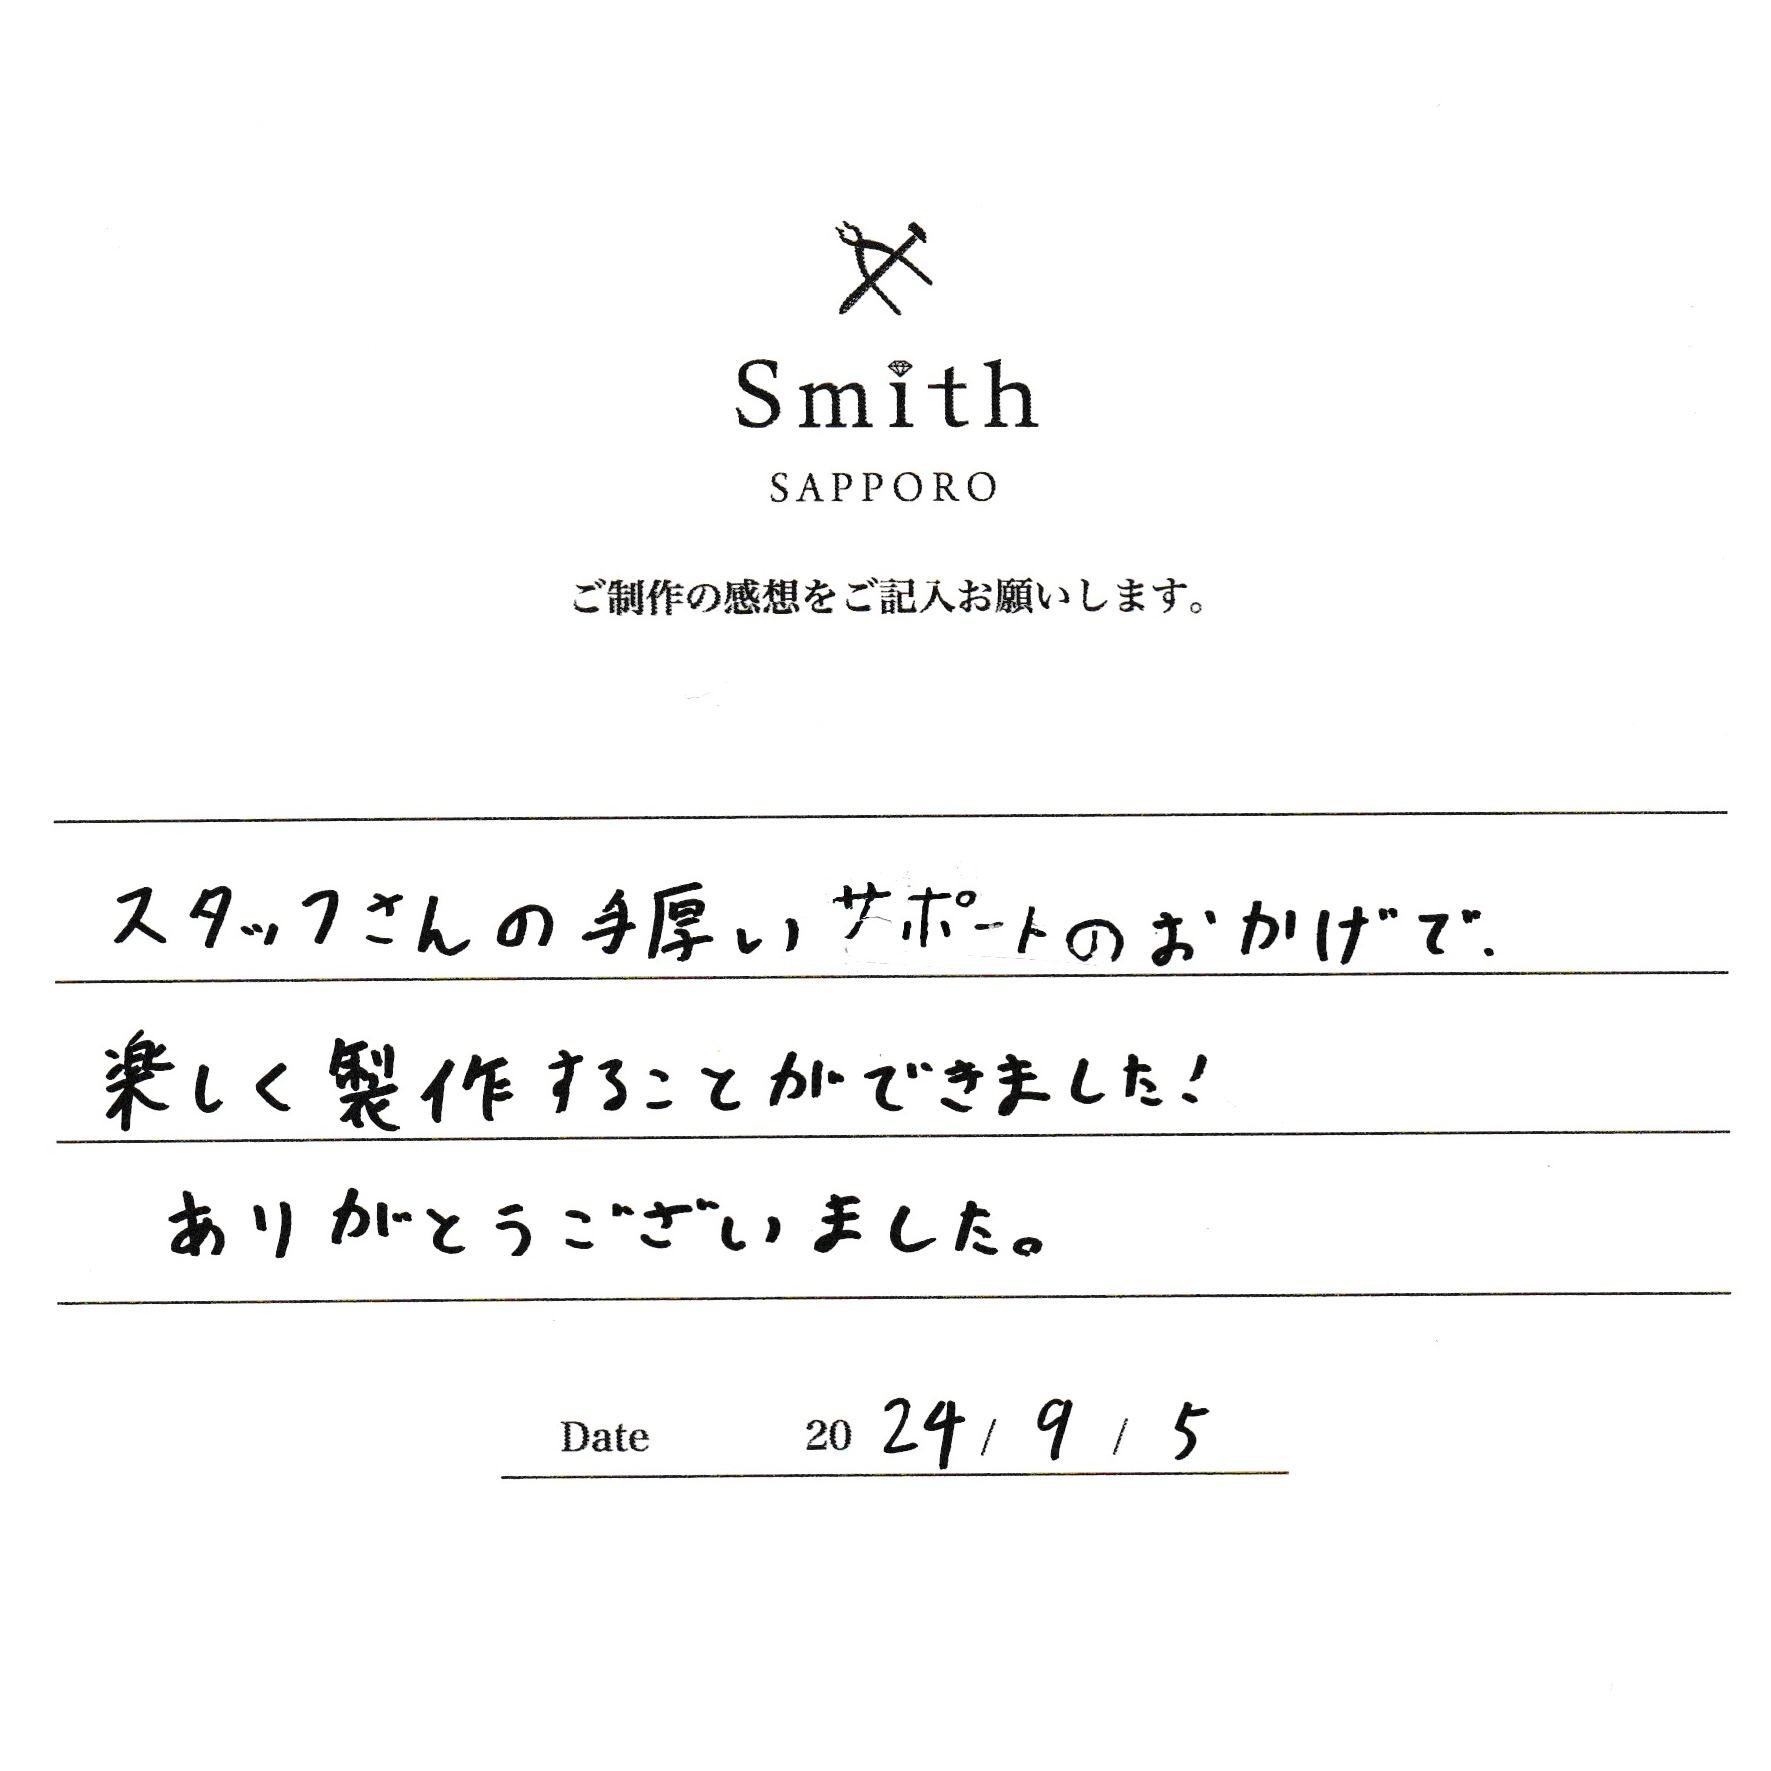 Smith
SAPPORO
ご制作の感想をご記入お願いします。
スタッフさんの手厚いサポートのおかげで、
楽しく製作することができました!
ありがとうございました。
Date 2024/9/5